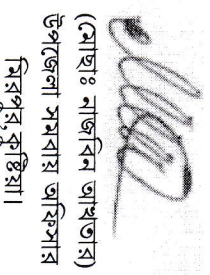 (মোছাঃ নাজনিন আখতার)
উপজেলা সমবায় অফিসার
মিরপুর, কুষ্টিয়া।